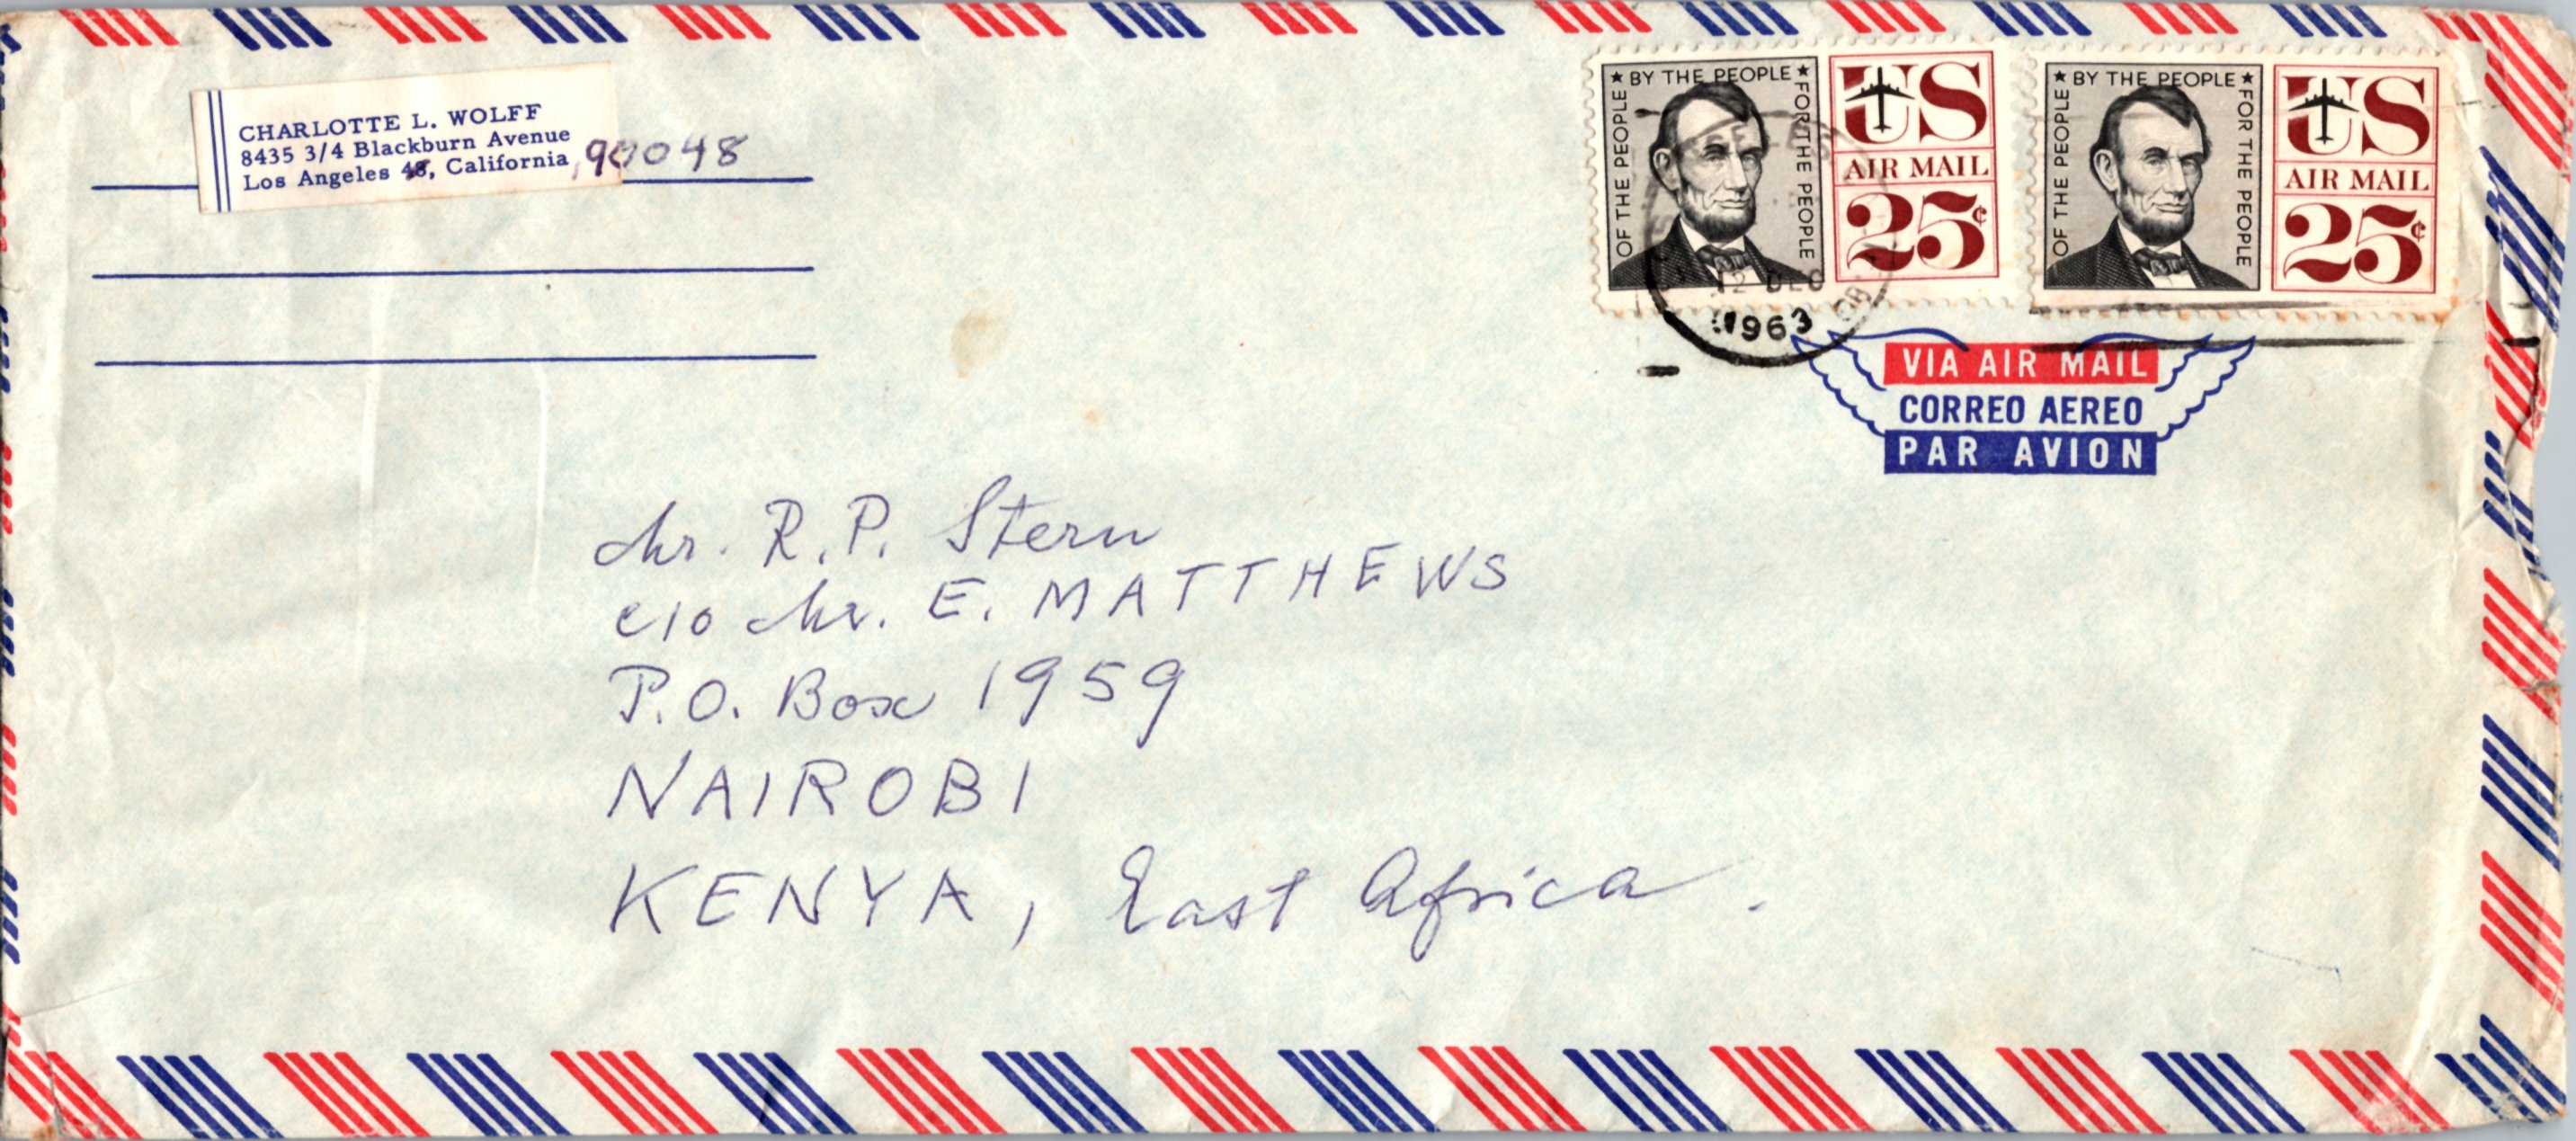 CHARLOTTE L. WOLFF
8435 3/4 Blackburn Avenue
Los Angeles 48, California, 90048
★ BY THE PEOPLE ★
OF THE PEOPLE
FOR THE PEOPLE
US
AIR MAIL
25¢
★ BY THE PEOPLE ★
OF THE PEOPLE
FOR THE PEOPLE
US
AIR MAIL
25¢
12 DEC
1963
VIA AIR MAIL
CORREO AEREO
PAR AVION
Mr. R. P. Stern
c/o Mr. E. MATTHEWS
P.O. Box 1959
NAIROBI
KENYA, East Africa.